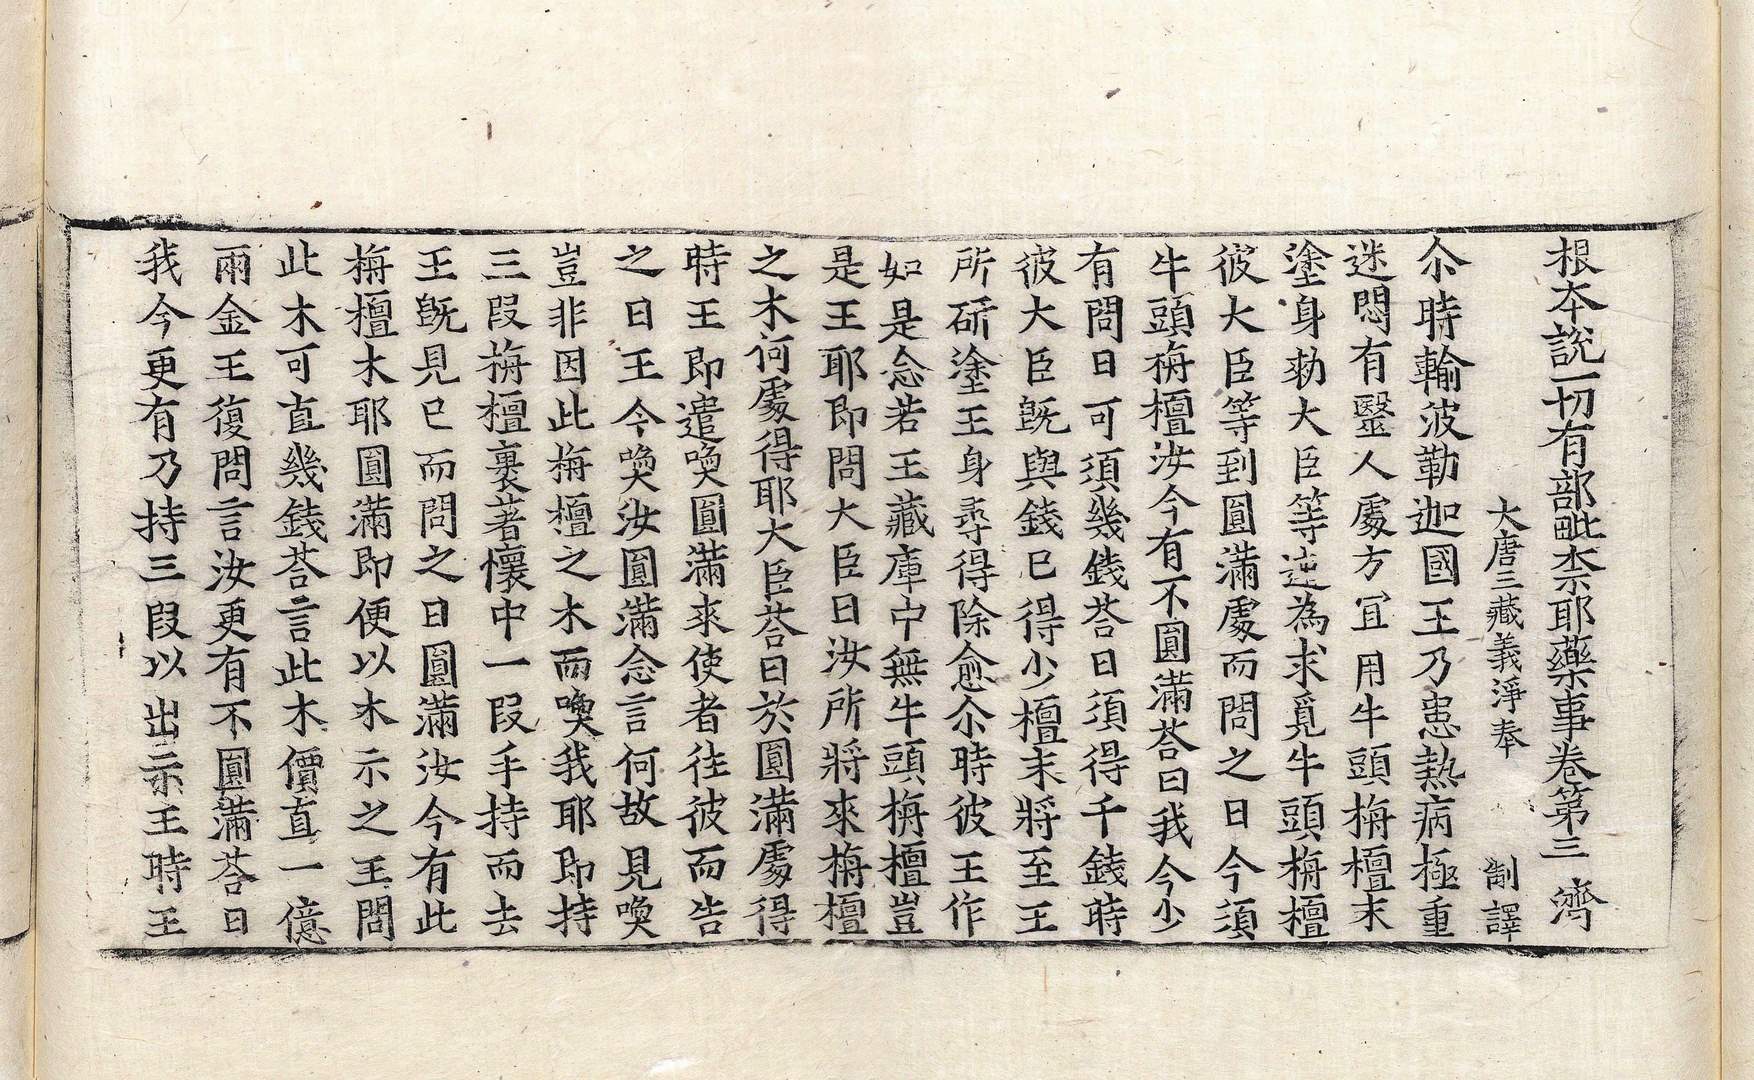 根本說一切有部毗柰耶藥事卷第三　濟
大唐三藏義淨奉　制譯
尒時輸波勒迦國王乃患熱病極重
迷悶有毉人處方冝用牛頭栴檀末
塗身勑大臣等速為求覓牛頭栴檀
彼大臣等到圓滿處而問之曰今須
牛頭栴檀汝今有不圓滿荅曰我今少
有問曰可須幾錢荅曰須得千錢時
彼大臣旣與錢已得少檀末將至王
所研塗王身尋得除愈尒時彼王作
如是念若王藏庫中無牛頭栴檀豈
是王耶即問大臣曰汝所將來栴檀
之木何處得耶大臣荅曰於圓滿處得
時王即遣喚圓滿來使者往彼而告
之曰王今喚汝圓滿念言何故見喚
豈非因此栴檀之木而喚我耶即持
三段栴檀裹著懷中一段手持而去
王旣見已而問之曰圓滿汝今有此
栴檀木耶圓滿即便以木示之王問
此木可直幾錢荅言此木價直一億
兩金王復問言汝更有不圓滿荅曰
我今更有乃持三段以出示王時王